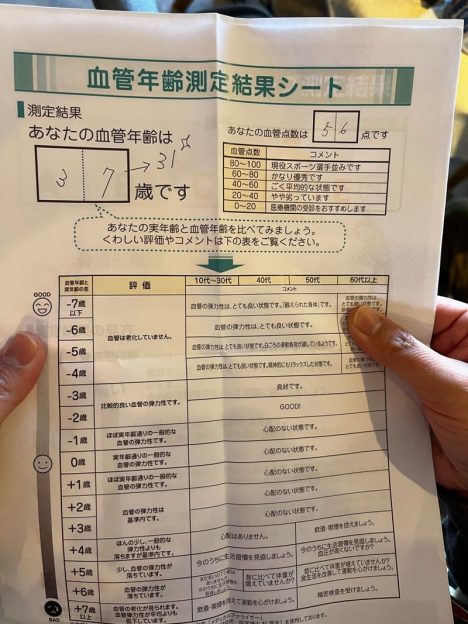 血管年齢測定結果シート
測定結果
あなたの血管年齢は
37→31☆
歳です
あなたの血管点数は 56 点です
血管点数 コメント
80~100 現役スポーツ選手並みです
60~80 かなり優秀です
40~60 ごく平均的な状態です
20~40 やや劣っています
0~20 医療機関の受診をおすすめします
あなたの実年齢と血管年齢を比べてみましょう。
くわしい評価やコメントは下の表をご覧ください。
血管年齢と実年齢の差 評価 コメント
10代~30代 40代 50代 60代以上
GOOD
-7歳以下
血管の弾力性は、とても良い状態です。「鍛えられた身体」です。
血管の弾力性は、
-6歳 血管は老化していません。 血管の弾力性は、とても良い状態です。
-5歳 血管の弾力性は、とても良い状態です。日ごろの運動効果が適しているようです。
-4歳 血管の弾力性は、とても良い状態です。精神的にもリラックスした状態です。
-3歳 良好です。
比較的良い血管の弾力性です。
-2歳 GOOD!
-1歳 ほぼ実年齢通りの一般的な血管の弾力性です。 心配のない状態です。
0歳 実年齢通りの一般的な血管の弾力性です。 心配のない状態です。
+1歳 ほぼ実年齢通りの一般的な血管の弾力性です。 心配のない状態です。
+2歳 心配のない状態です。
血管の弾力性は基準内です。
+3歳 心配のない状態です。
+4歳 ほんの少し、一般的な弾力性よりも落ちますが基準内です。 心配はありません。 飲酒・喫煙を控えましょう。
+5歳 少し、血管の弾力性が落ちています。 今のうちに生活習慣を見直しましょう。 今のうちに生活習慣を見直しましょう。血圧が高くないですか?
+6歳 血管の弾力性が落ちています。 昔に比べて体重が増えていませんか? 昔に比べて体重が増えていませんか?食生活を改善して運動を心がけましょう。
+7歳以上 血管の老化が見られます。血管弾力性が平均よりも低下しています。 飲酒・喫煙を控えて運動を心がけましょう。 精密検査を受けましょう。
BAD